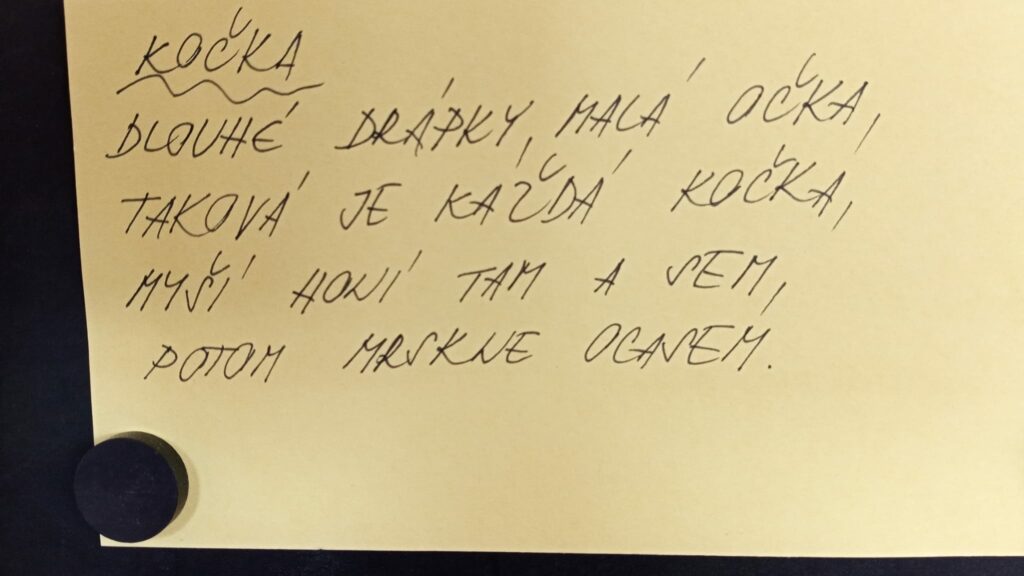 KOČKA
DLOUHÉ DRÁPKY, MALÁ OČKA,
TAKOVÁ JE KAŽDÁ KOČKA,
MYŠÍ HONÍ TAM A SEM,
POTOM MRSKNE OCASEM.